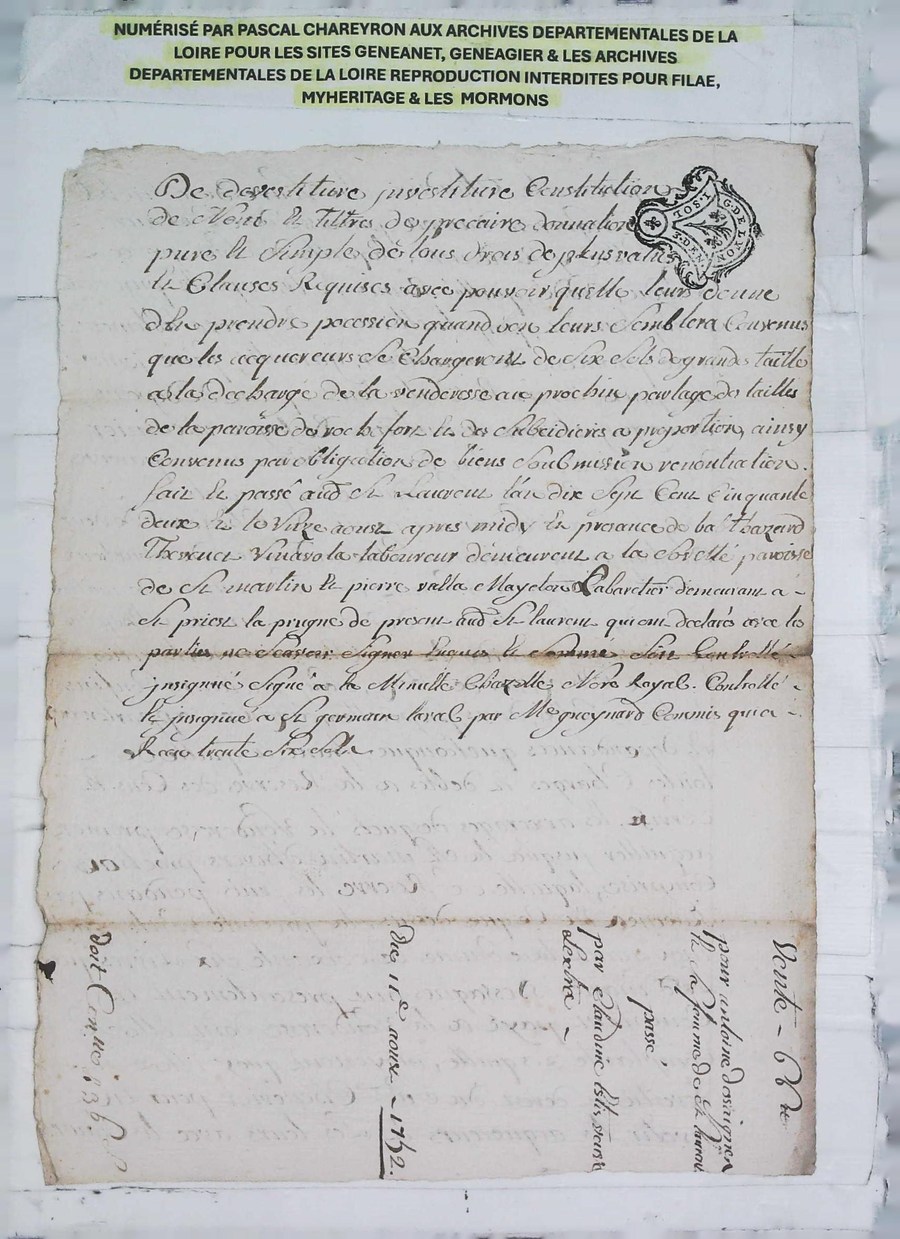 NUMÉRISÉ PAR PASCAL CHAREYRON AUX ARCHIVES DEPARTEMENTALES DE LA
LOIRE POUR LES SITES GENEANET, GENEAGIER & LES ARCHIVES
DEPARTEMENTALES DE LA LOIRE REPRODUCTION INTERDITES POUR FILAE,
MYHERITAGE & LES MORMONS
De devestiture jnvestiture Constitution
de Nom et tiltres de precaire donnation
pure et Simple de tous drois de plus value
et Clauses Requises avec pouvoir quelle leurs donne
den prendre pocession quand bon leurs Semblera Convenus
que les acquereurs Se Chargeront de Six Sols de grande taille
a la decharge de la venderesse au prochin partage de tailles
de la paroisse de rochefort et des Subcidieres a proportion, ainsy
Convenus par obligation de biens Soubmission renontiation.
fait et passé aud St Laurent l'an dix Sept Cent Cinquante
deux et le Unze aoust apres midy en presance de balthazard
Thevenet laboureur demeurent a la paroisse
de St martin et pierre vialla Cabaretier demeurant a
St priest la prugne de present aud St laurent qui ont declarés avec les
parties ne Scavoir Signer Enquis et Somme Soit Controllé
jnsignué Signé a la Minutte Chazelle Nore Royal. Controllé
et jnsignué a St germain laval par Me greynard Commis qui a
Receu trente Six Sols
G. DE LYON
Vente - 66 lt
pour antoine dossaignes
et sa femme de St laurent
passé
par Claudine
du 11e aoust 1752.
doit